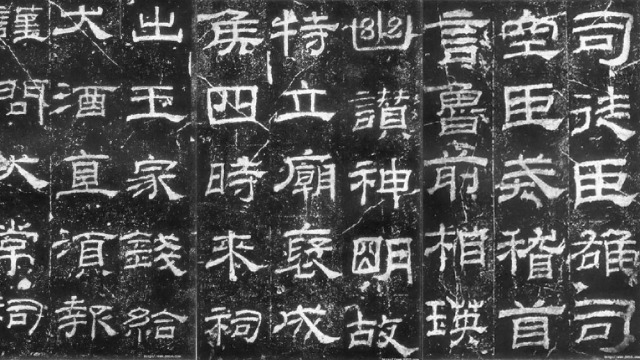 司徒臣雄司
空臣戒稽首
言魯前相瑛
幽讚神明故
特立廟褒成
侯四時來祠
出王家錢給
犬酒直須報
謹問大常祠